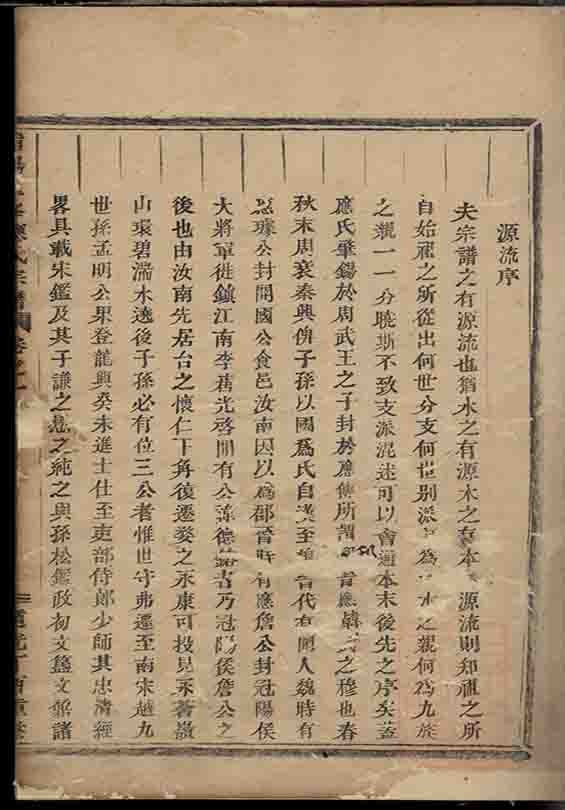 源流序
夫宗譜之有源流也猶水之有源木之有本 源流則知祖之所
自始祖之所從出何世分支何世别派 為 水之親何為九族
之親一一分曉斯不致支派混迷可以會通本末後先之序矣蓋
應氏肇錫於周武王之子封於應傳所謂 晉應韓 之穆也春
秋末周衰秦興俾子孫以國爲氏自漢至 代有聞人魏時有
璩公封開國公食邑汝南因以爲郡晉時有應詹公封冠陽侯
大將軍徙鎮江南李唐光啓間有公諱德 者乃冠陽侯詹公之
後也由汝南先居台之懷仁下角復遷婺之永康可投見 蒼巖
山環碧湍水遶後子孫必有位三公者惟世守弗遷至南宋越九
世孫孟明公果登龍興癸未進士仕至吏部侍郎少師其忠清經
畧具載宋鑑及其子謙之懋之純之與孫松鑑政初文簋文鼎諸
應氏宗譜 卷之一